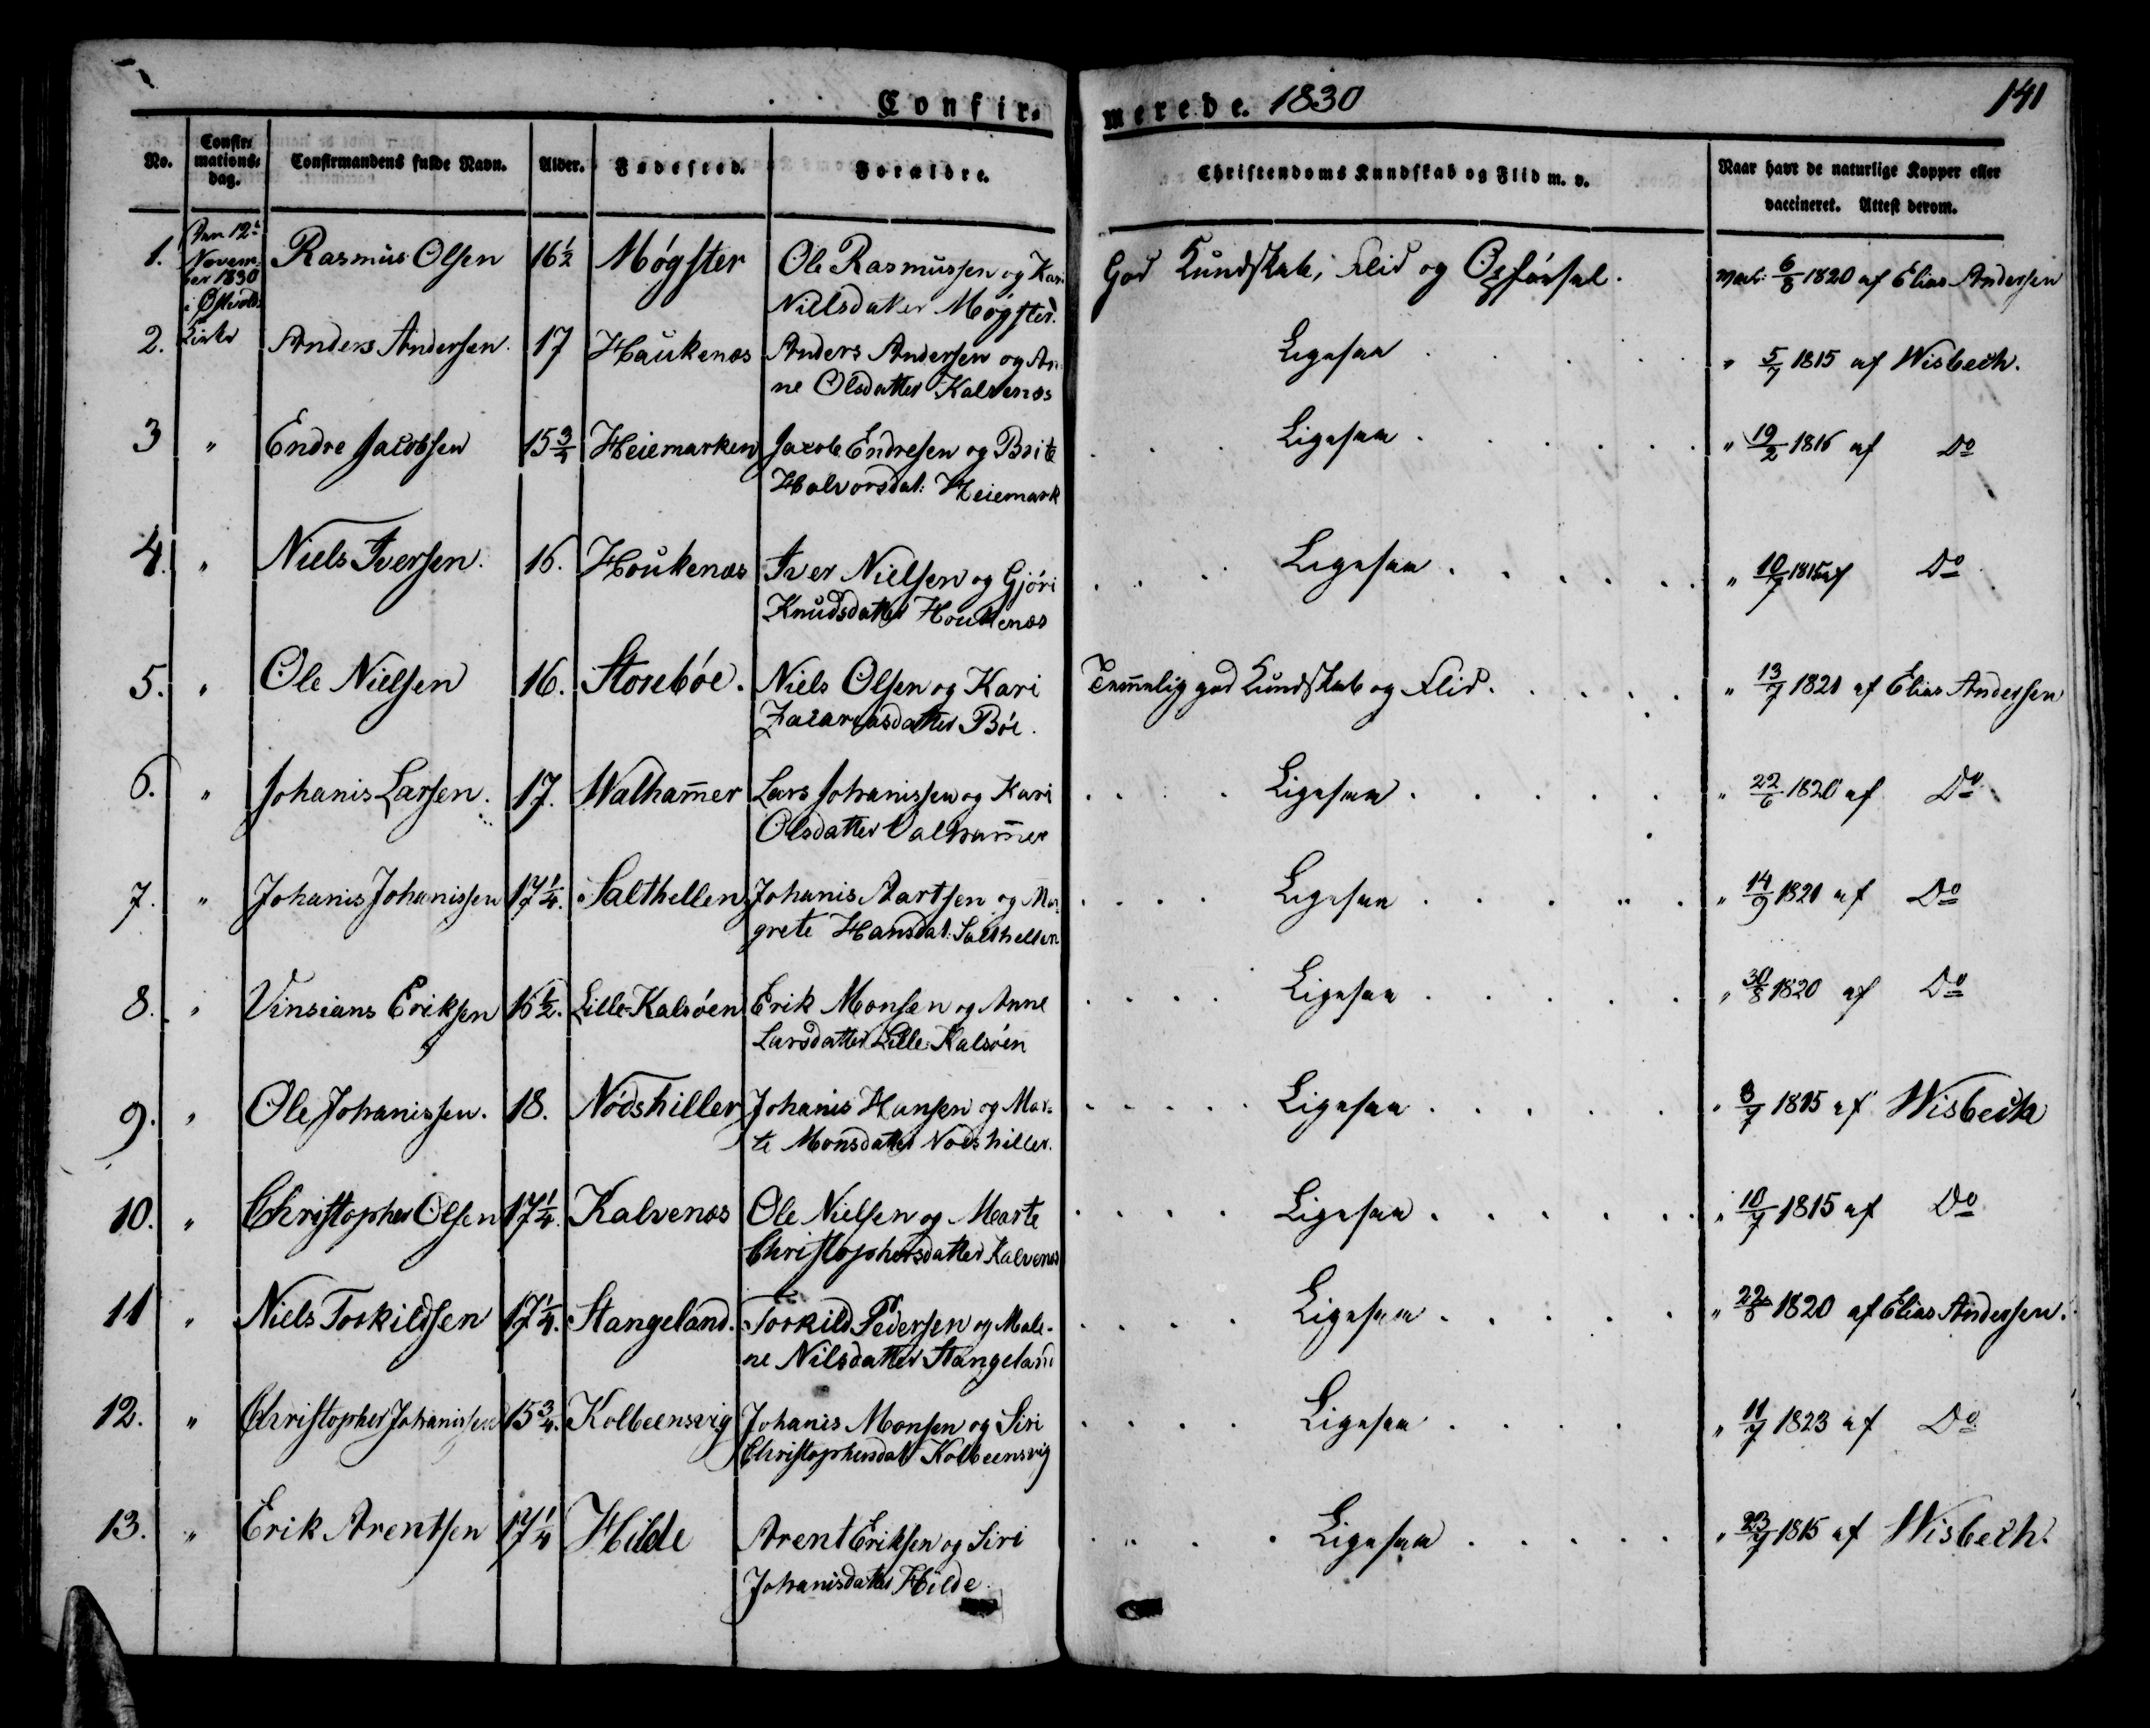 Confir-
merede. 1830
141
No.
Confir-
mations-
dag.
Confirmandens fulde Navn.
Alder.
Fødested.
Forældre.
Christendoms Kundskab og Flid m. v.
Naar havt de naturlige Kopper eller
vaccineret. Attest derom.
1. Den 12te Novem- ber 1830 i Kirke Rasmus Olsen 16 1/2 Møgster Ole Rasmussen og Kari God Kundskab, Flid og Opførsel. vac: 6/8 1820 af Elias Andersen
Nielsdater Møgster.
2. Anders Andersen. 17 Haukenæs Anders Andersen og An- Ligesaa " 5/7 1815 af Wisbech.
ne Olsdatter Kalvenæs
3 " Endre Jacobsen 15 3/4 Heiemarken Jacob Endresen og Brite Ligesaa " 19/2 1816 af Do
Halvorsdat: Heiemark
4. " Niels Iversen. 16. Houkenæs Iver Nielsen og Gjøri Ligesaa " 10/7 1815 af Do
Knudsdatter Houkenæs
5. " Ole Nielsen 16. Storebøe. Niels Olsen og Kari Temmelig god Kundskab og Flid. " 13/7 1821 af Elias Andersen
Zacariasdatter Bøe.
6. " Johanis Larsen. 17. Walham̄er Lars Johanissen og Kari Ligesaa " 22/6 1820 af Do
Olsdatter Valham̄er
7. " Johanis Johanissen 17 1/4. Salthellen Johanis Aartsen og Mar- Ligesaa " 14/9 1821 af Do
grete Hansdat: Salthellen
8. " Vinsians Eriksen 16 1/2. Lille-Kalsøen Erik Monsen og Anne Ligesaa " 30/8 1820 af Do
Larsdatter Lille-Kalsøen
9. " Ole Johanissen. 18. Nødshiller Johanis Hansen og Mar- Ligesaa " 3/7 1815 af Wisbech
te Monsdatter Nødshiller.
10. " Christopher Olsen 17 1/4. Kalvenæs Ole Nielsen og Marte Ligesaa " 10/7 1815 af Do
Christophersdatter Kalvenæs
11 " Niels Torkildsen 17 1/4. Stangeland. Torkild Pedersen og Male- Ligesaa " 22/8 1820 af Elias Andersen.
ne Nilsdatter Stangeland
12. " Christopher Johanissen 15 3/4. Kolbeensvig Johanis Monsen og Siri Ligesaa " 11/7 1823 af Do
Christophersdat Kolbeensvig
13. " Erik Arentsen 17 1/4 Hilde Arent Eriksen og Siri Ligesaa " 23/7 1815 af Wisbech.
Johanisdatter Hilde.